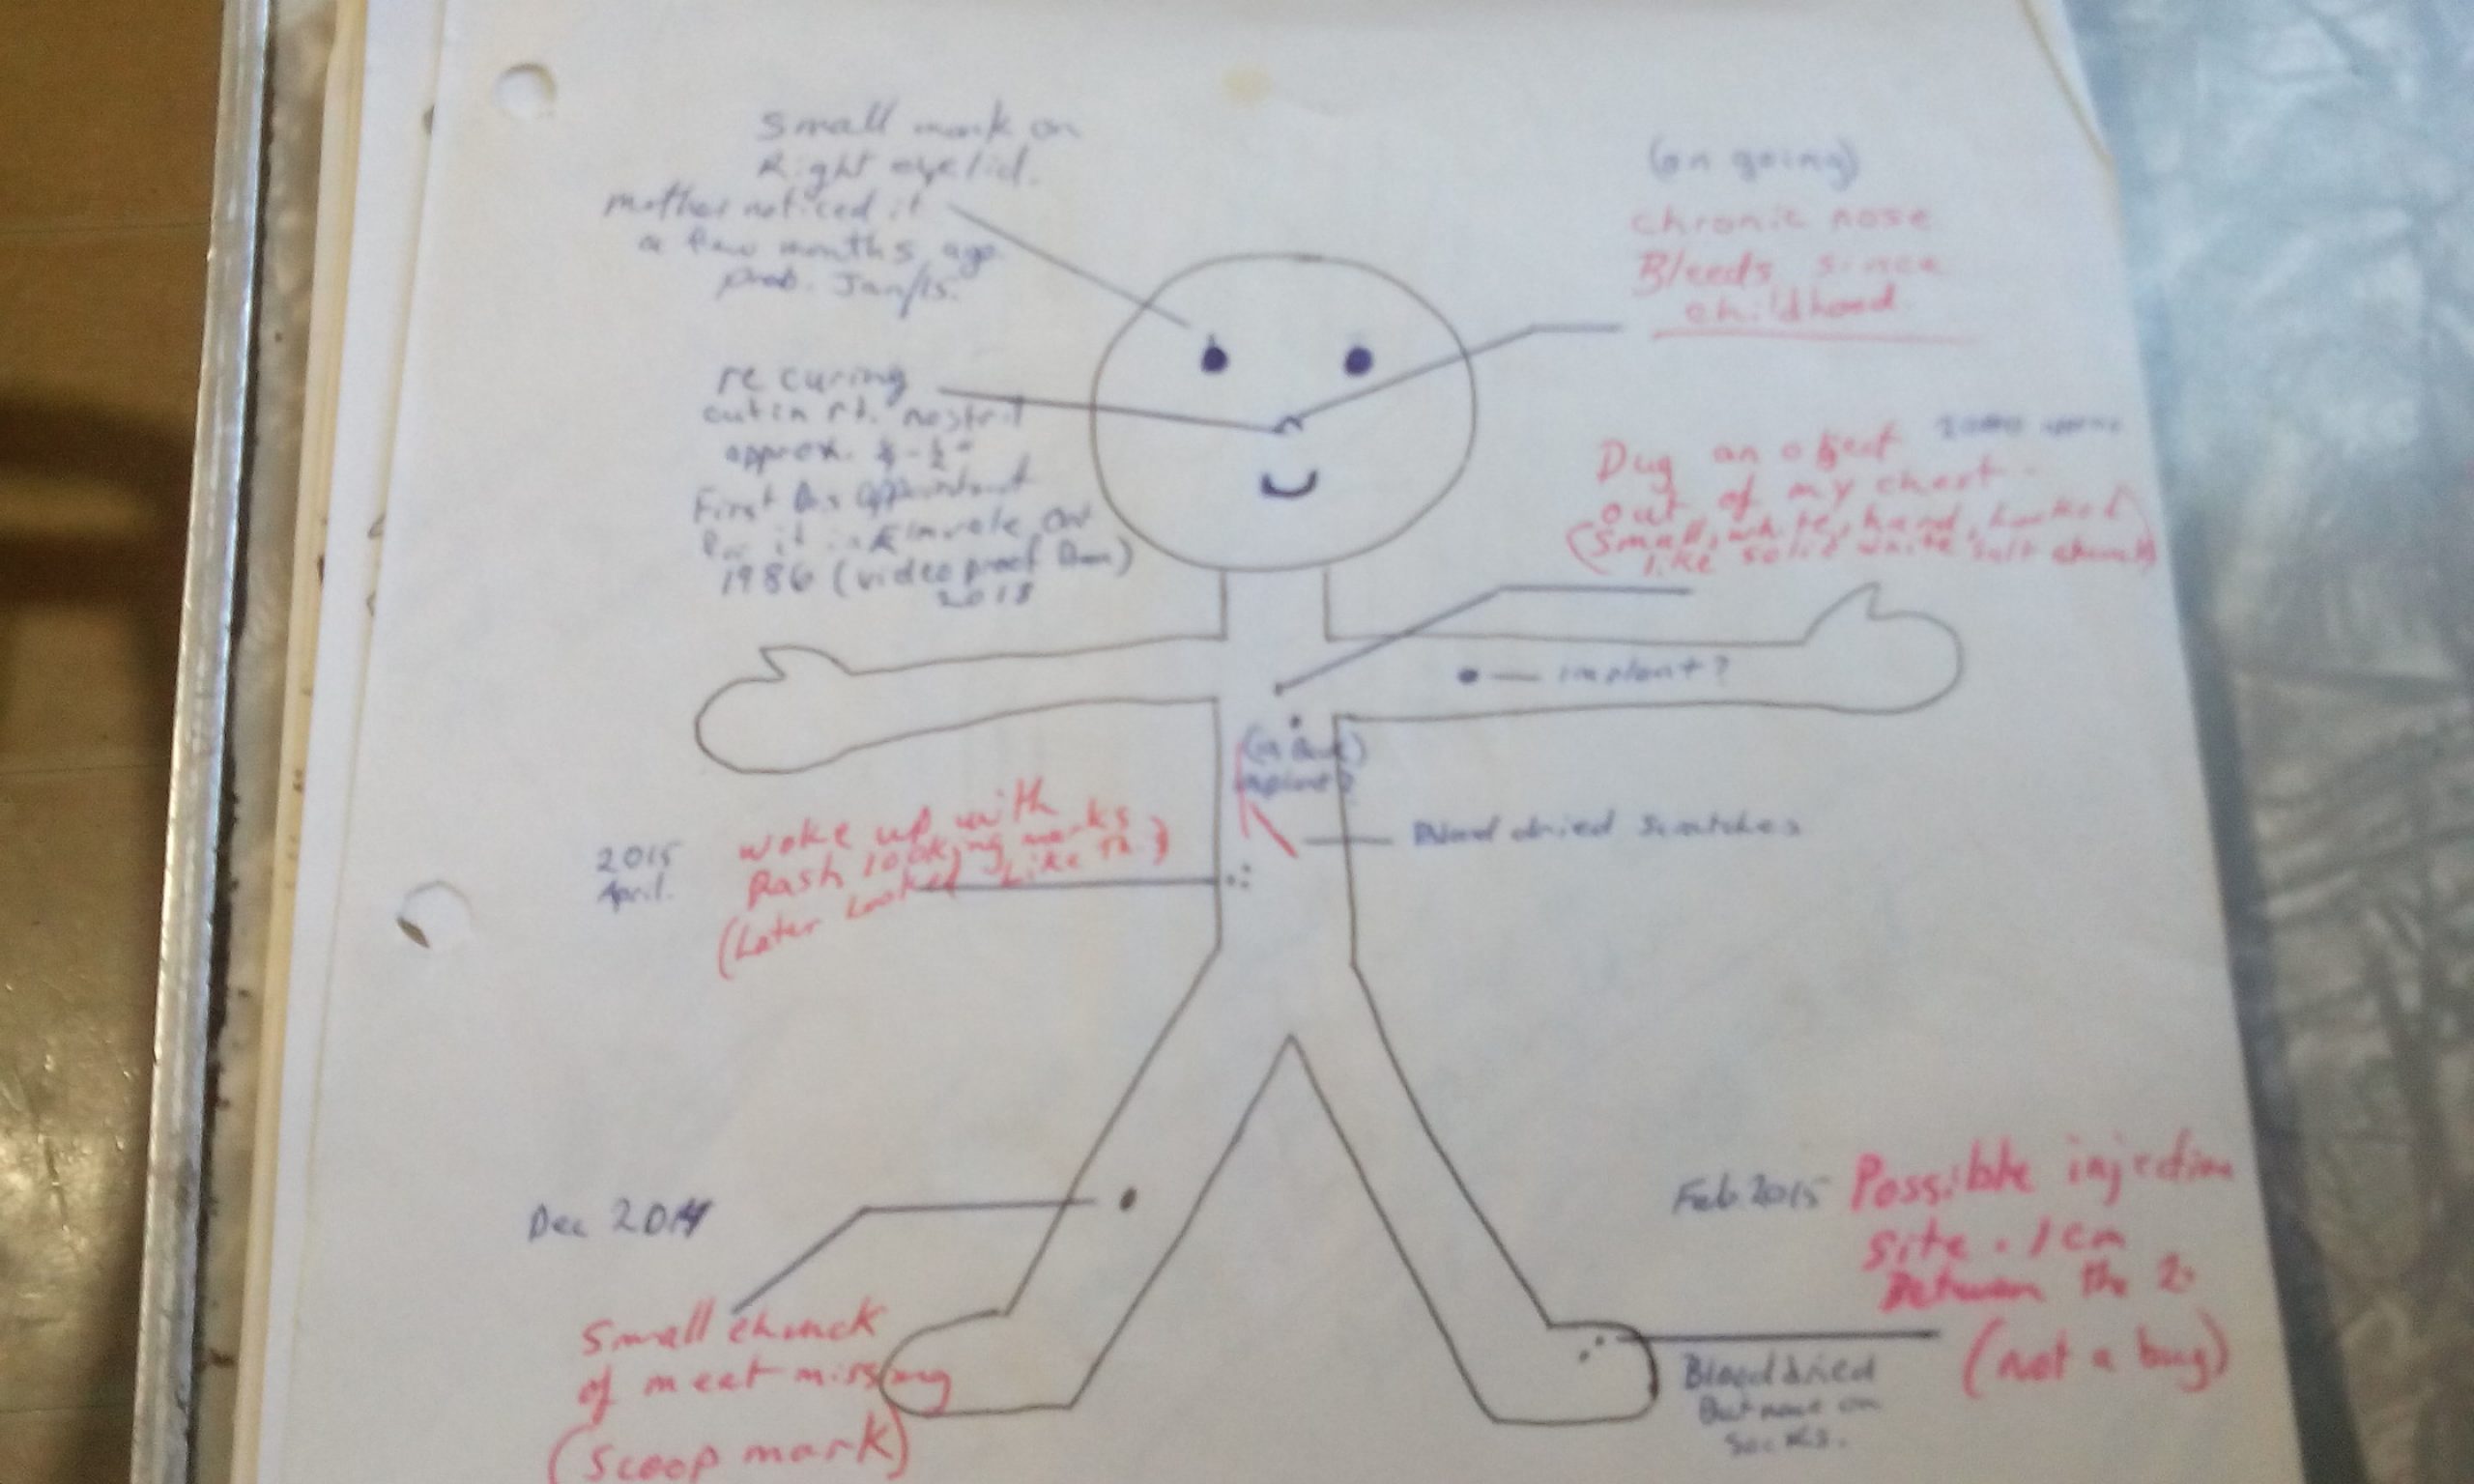 Small mark on
Right eyelid.
mother noticed it
a few months ago
prob. Jan/15.
re curing
cut in rt. nostril
approx. ¼ - ½"
First appointment
for it in Elmvale Ont
1986 (video proof Dan)
2018
(on going)
chronic nose
Bleeds since
childhood
Dug an object
out of my chest
(Small, white, hard, Looked
like solid white salt chunk)
implant?
(in )
implant?
Blood dried scratches
2015
April.
woke up with
Rash looking marks
(Later Looked Like )
Dec 2014
Small chunck
of meet missing
(Scoop mark)
Feb. 2015
Possible injection
site. 1cm
Between the 2.
(not a bug)
Blood dried
But none on
socks.